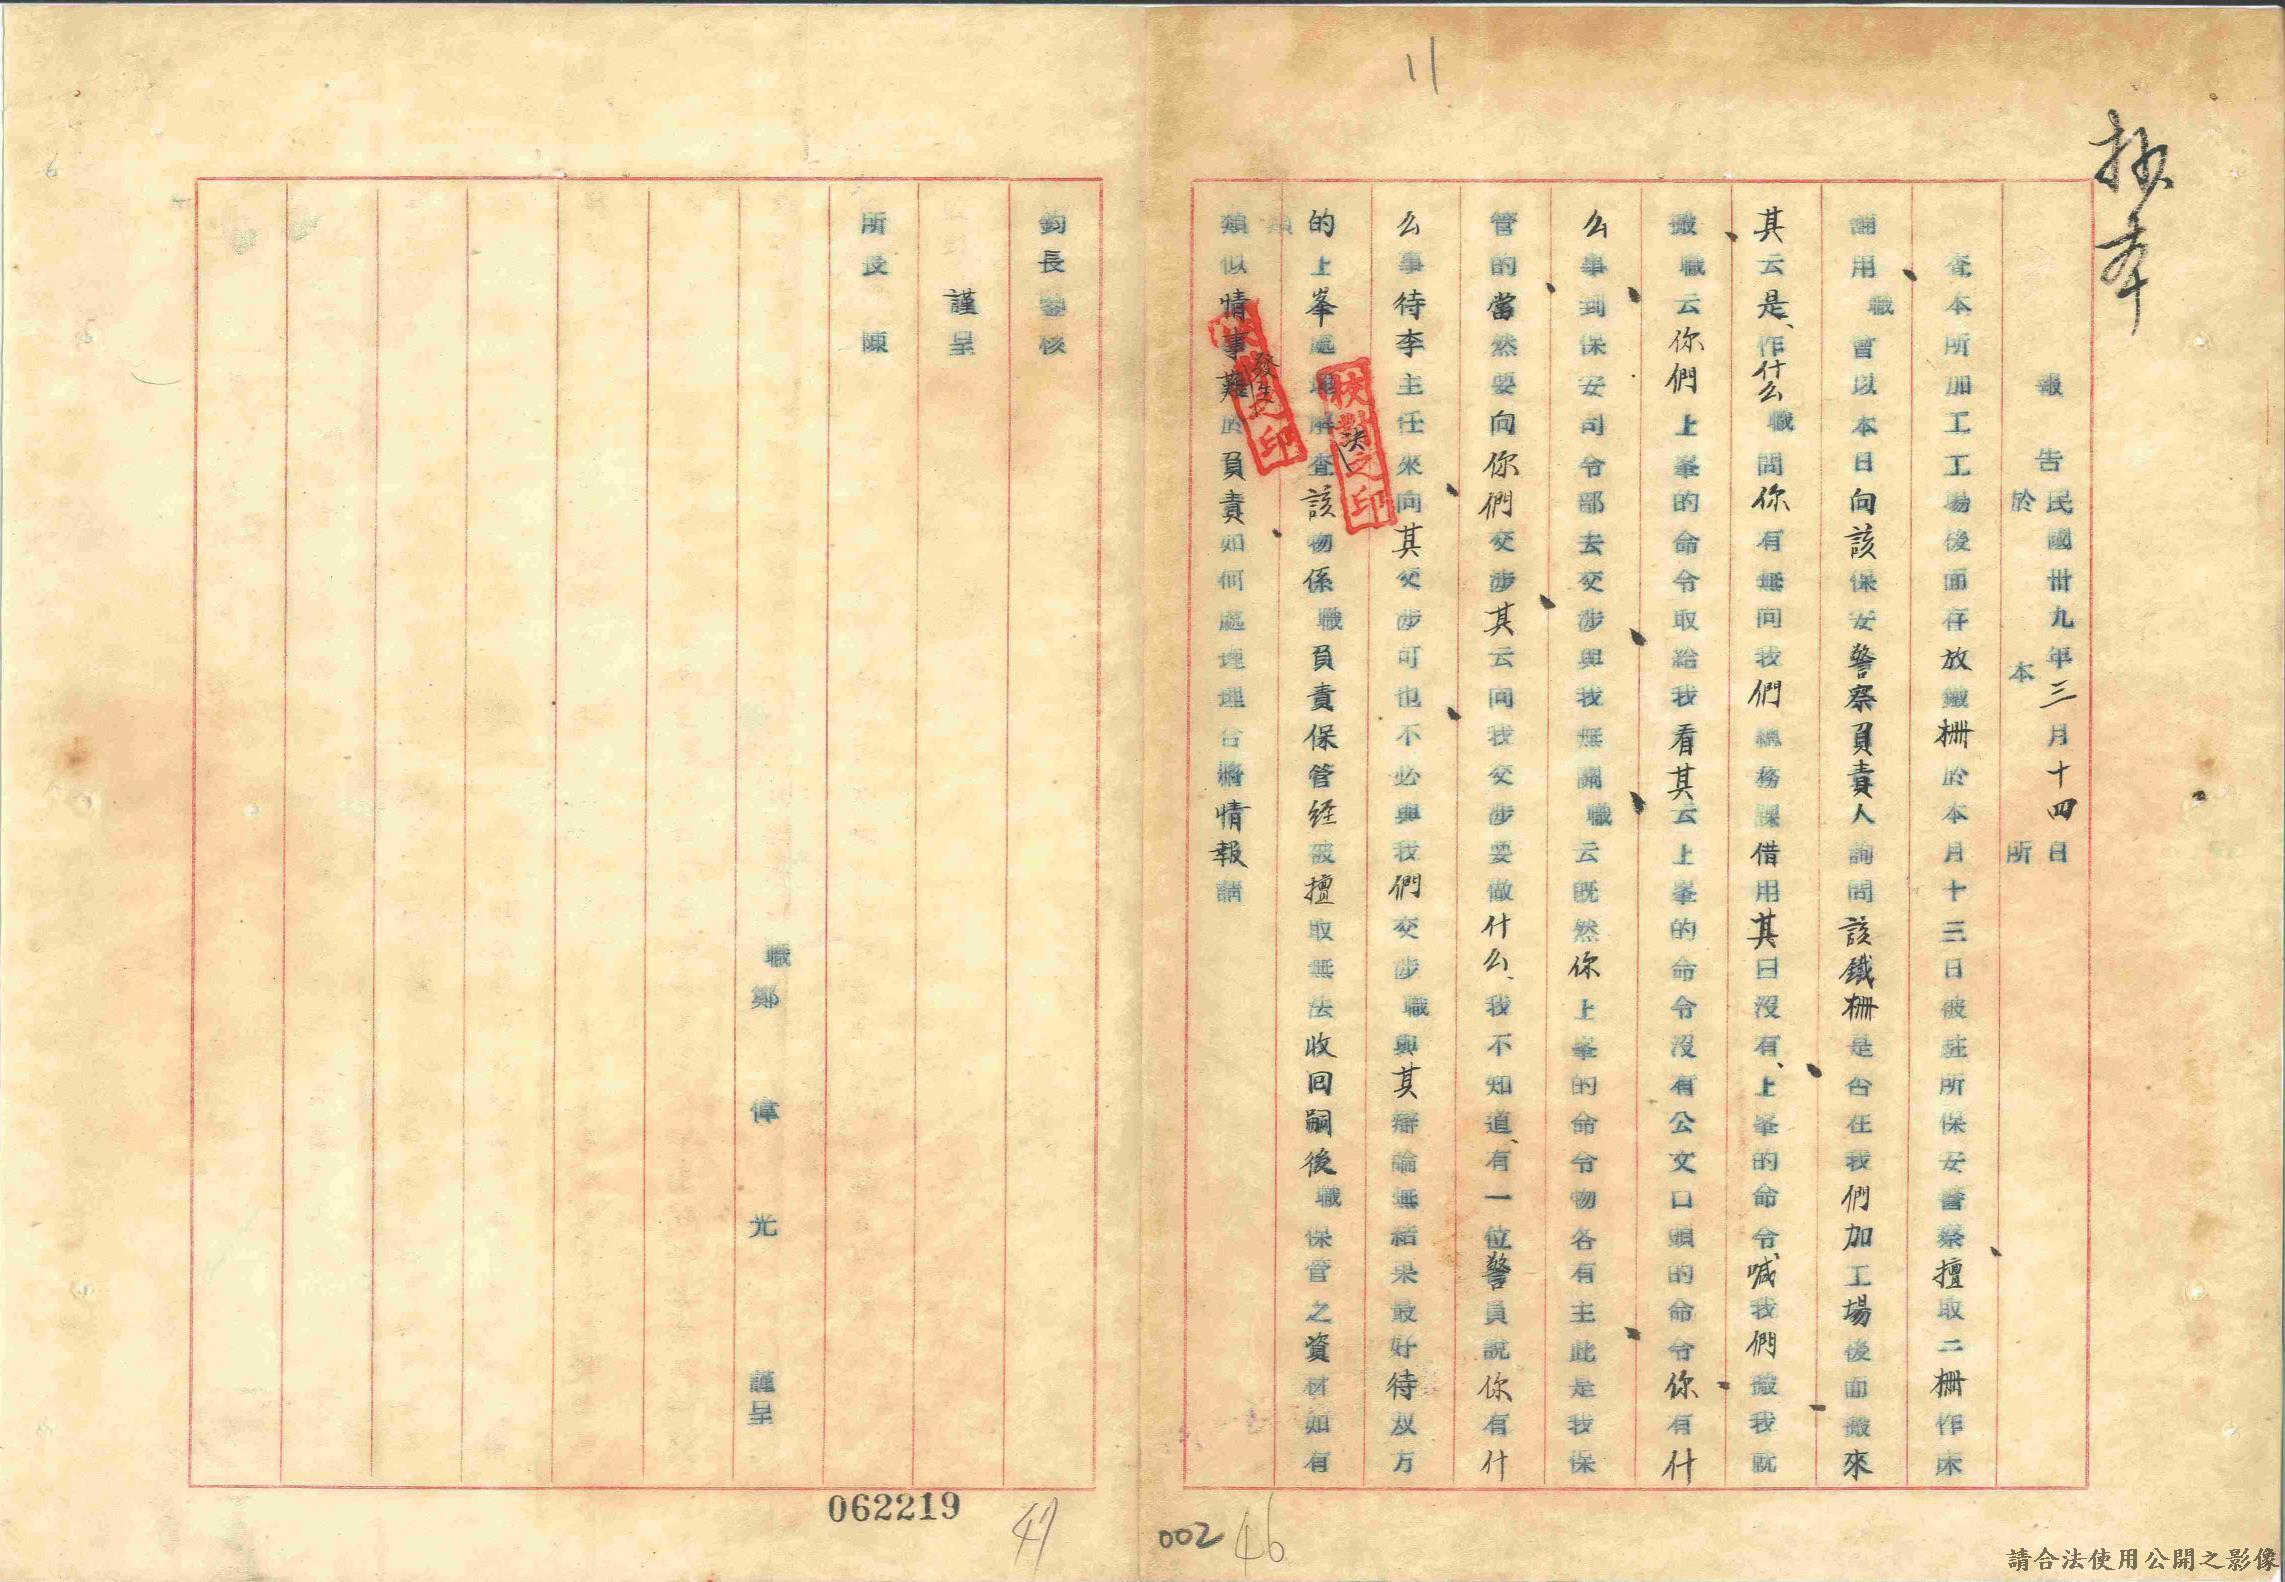 11
抄本
報告 民國卅九年三月十四日
於本所
查本所加工工場後面存放鐵柵於本月十三日被駐所保安警察擅取二柵作床
舖用職曾以本日向該保安警察負責人詢問該鐵柵是否在我們加工場後面搬來
其云是、作什么職問你有無向我們總務課借用其曰沒有、上峯的命令喊我們搬我就
搬職云你們上峯的命令取給我看其云上峯的命令沒有公文口頭的命令你有什
么事到保安司令部去交涉與我無關職云既然你上峯的命令物各有主此是我保
管的當然要向你們交涉其云向我交涉要做什么、我不知道、有一位警員說你有什
么事待李主任來向其交涉可也不必與我們交涉職與其辯論無結果最好待双方
的上峯處理解決查該物係職負責保管経被擅取無法收回嗣後職保管之資材如有
類似情事發生難於負責如何處理理合將情報請
鈞長鑒核
謹呈
所長 陳
職鄭偉光 謹呈
校對之印
062219
47
002
46
請合法使用公開之影像